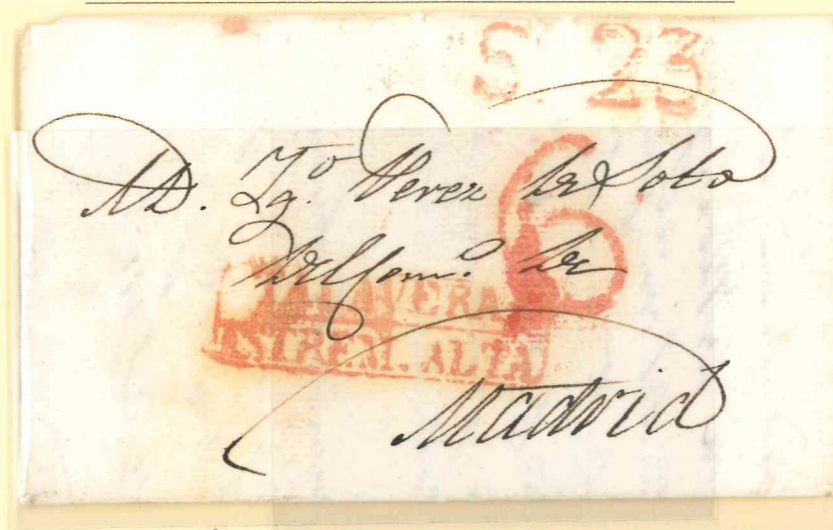 S. 23
A D. Ygº Perez de Soto
6
del Comº de
TALAVERA
ESTREM. ALTA
Madrid